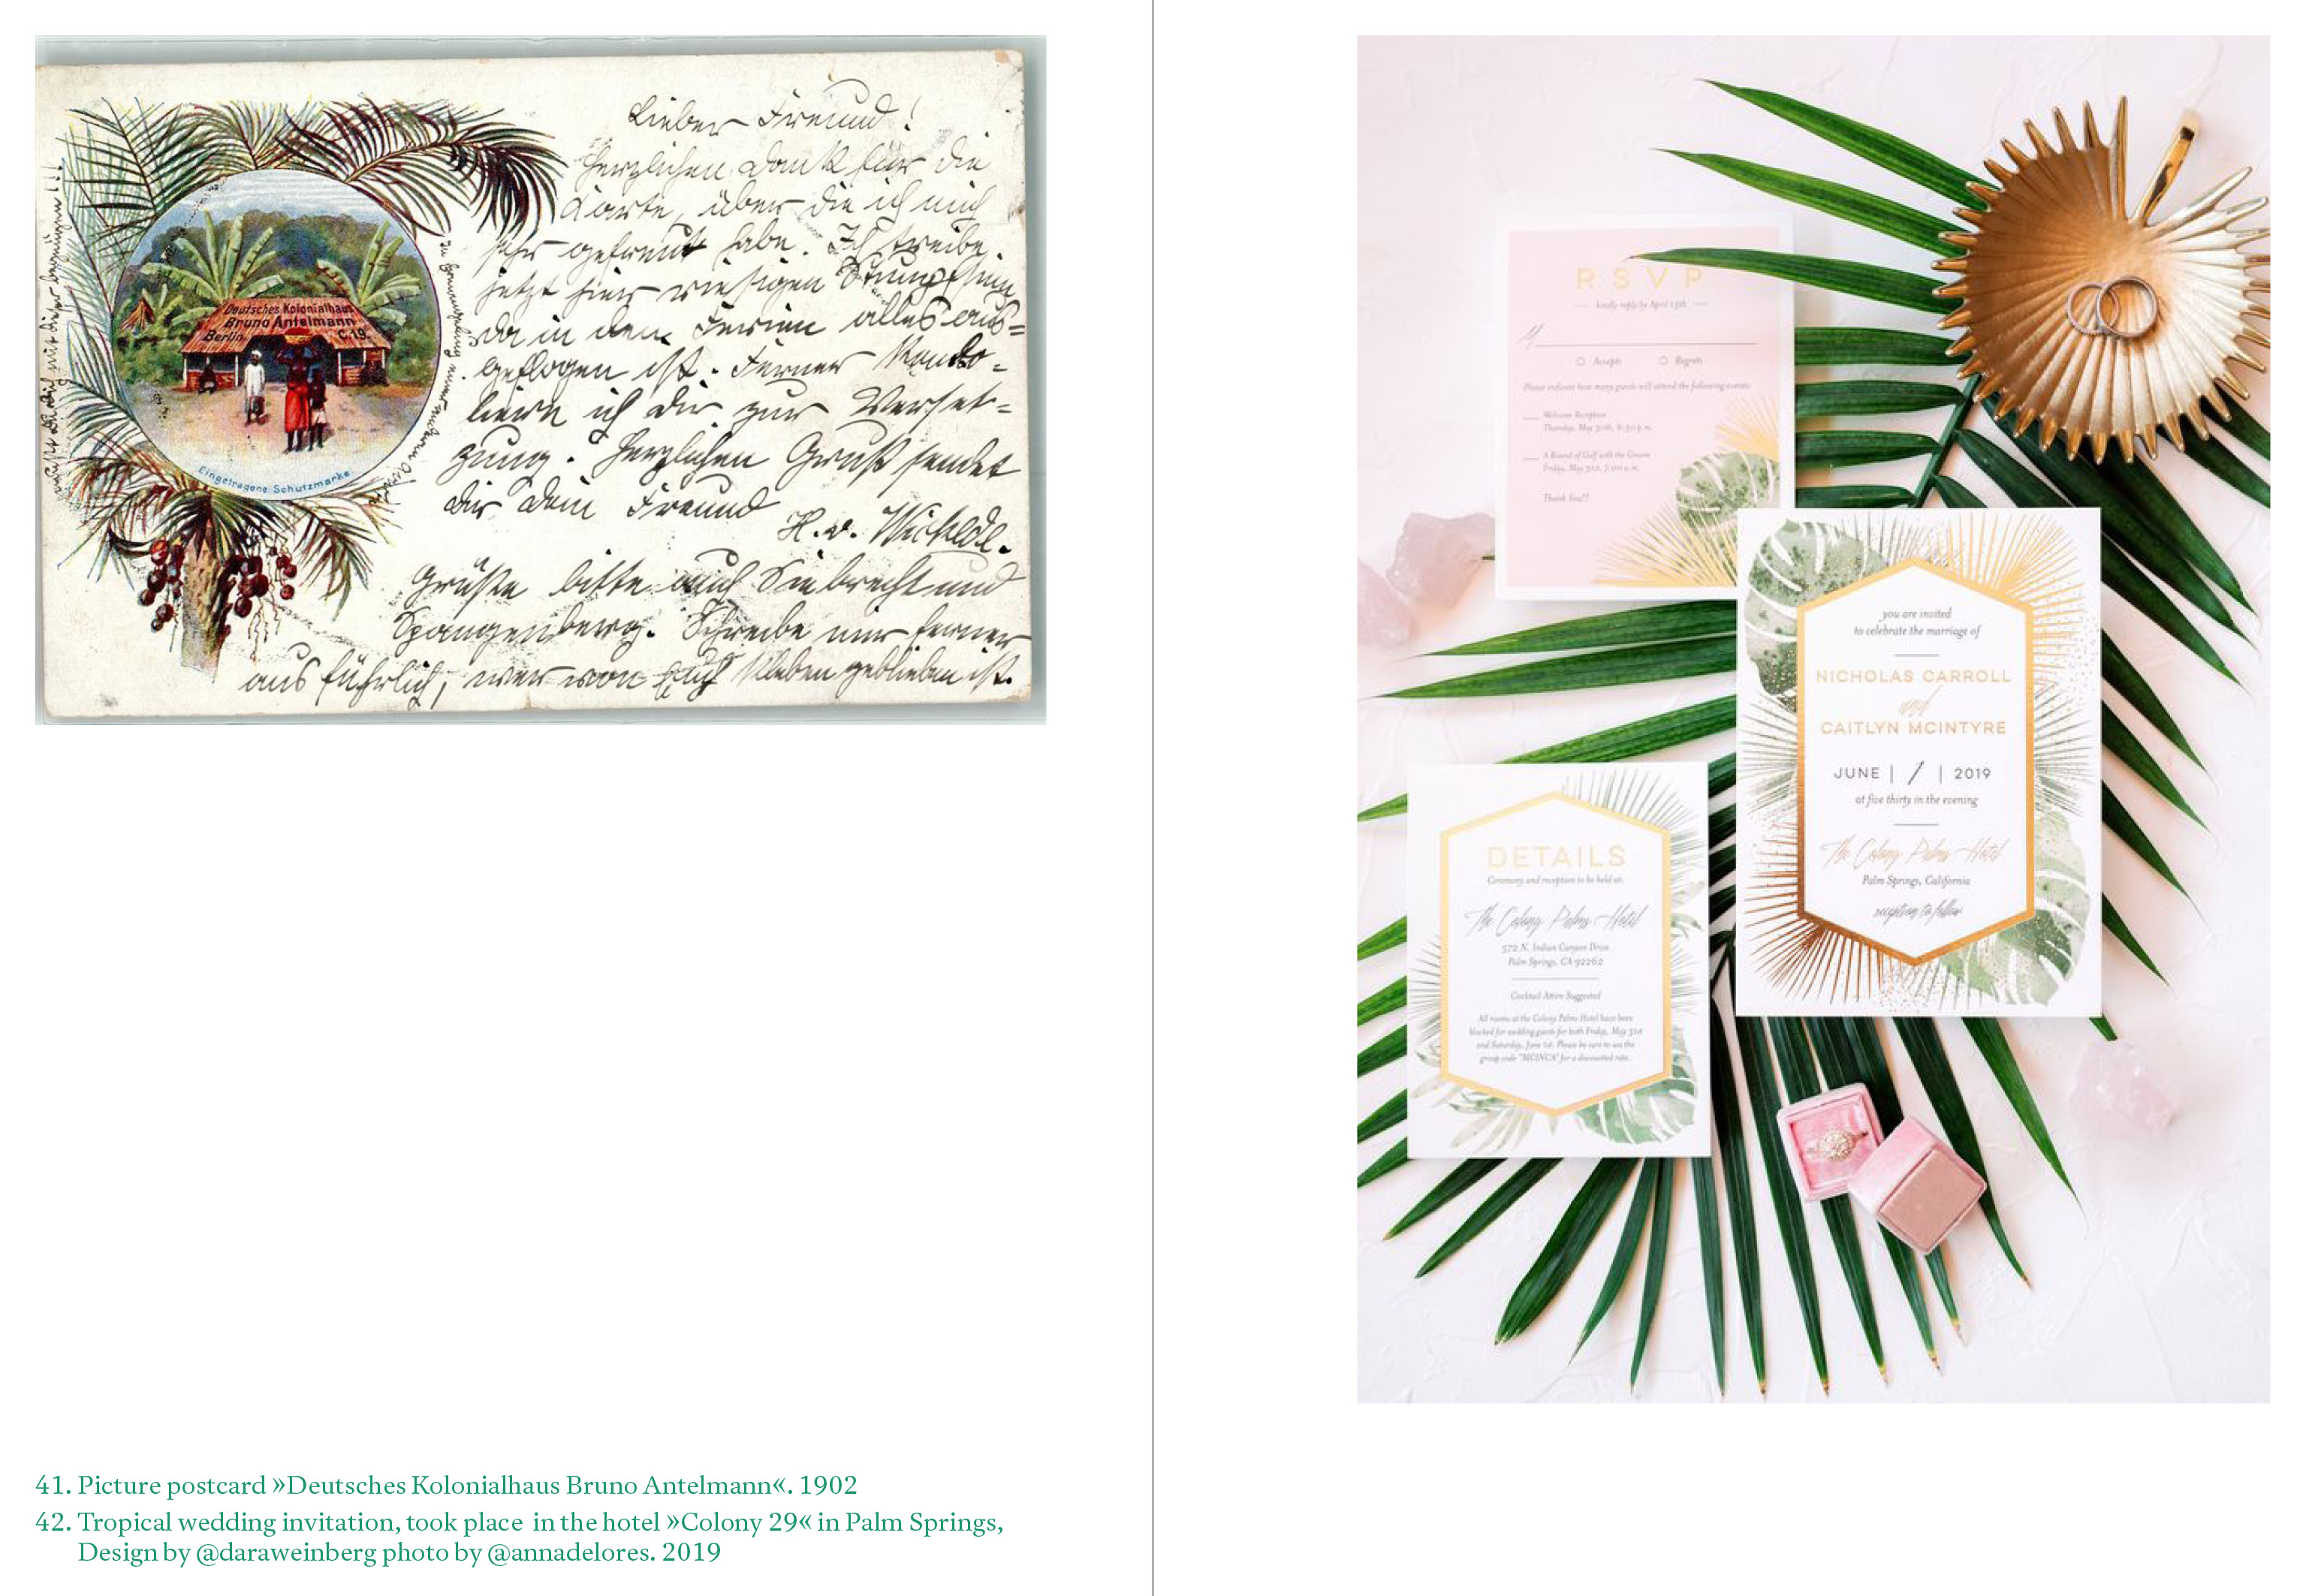 Lieber Freund!
Herzlichen Dank für die
Karte, über die ich mich
sehr gefreut habe. Ich treibe
jetzt hier riesigen Stumpfsinn
da in den Ferien alles aus=
geflogen ist. Ferner kondo-
liere ich dir zur Verset=
zung. Herzlichen Gruß sendet
dir dein Freund
H. v. Wickede.
Grüße bitte auch Siebrecht und
Spangenberg. Schreibe mir ferner
ausführlich, wer von Euch kleben geblieben ist.
In Ermangelung einer anderen
mußt Du dich mit dieser begnügen!!!
Deutsches Kolonialhaus
Bruno Antelmann
Berlin C. 19.
Eingetragene Schutzmarke.
RSVP
kindly reply by April 15th
M
Accepts Regrets
Please indicate how many guests will attend the following events:
Welcome Reception
Thursday, May 30th, 6:30 p.m.
A Round of Golf with the Groom
Friday, May 31st, 7:00 a.m.
Thank You!!
you are invited
to celebrate the marriage of
NICHOLAS CARROLL
and
CAITLYN MCINTYRE
JUNE | 1 | 2019
at five thirty in the evening
The Colony Palms Hotel
Palm Springs, California
reception to follow
DETAILS
Ceremony and reception to be held at:
The Colony Palms Hotel
572 N. Indian Canyon Drive
Palm Springs, CA 92262
Cocktail Attire Suggested
All rooms at the Colony Palms Hotel have been
blocked for wedding guests for both Friday, May 31st
and Saturday, June 1st. Please be sure to use the
group code "MCINCA" for a discounted rate.
41. Picture postcard »Deutsches Kolonialhaus Bruno Antelmann«. 1902
42. Tropical wedding invitation, took place in the hotel »Colony 29« in Palm Springs,
Design by @daraweinberg photo by @annadelores. 2019